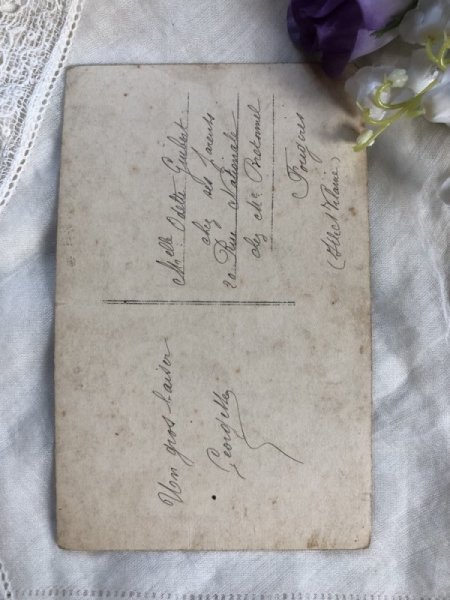 Un gros baiser
Georgette
Melle Odette Guibert
chez ses parents
20 Rue Nationale
chez Mr Bretonnel
Fougères
(Ille et Vilaine)